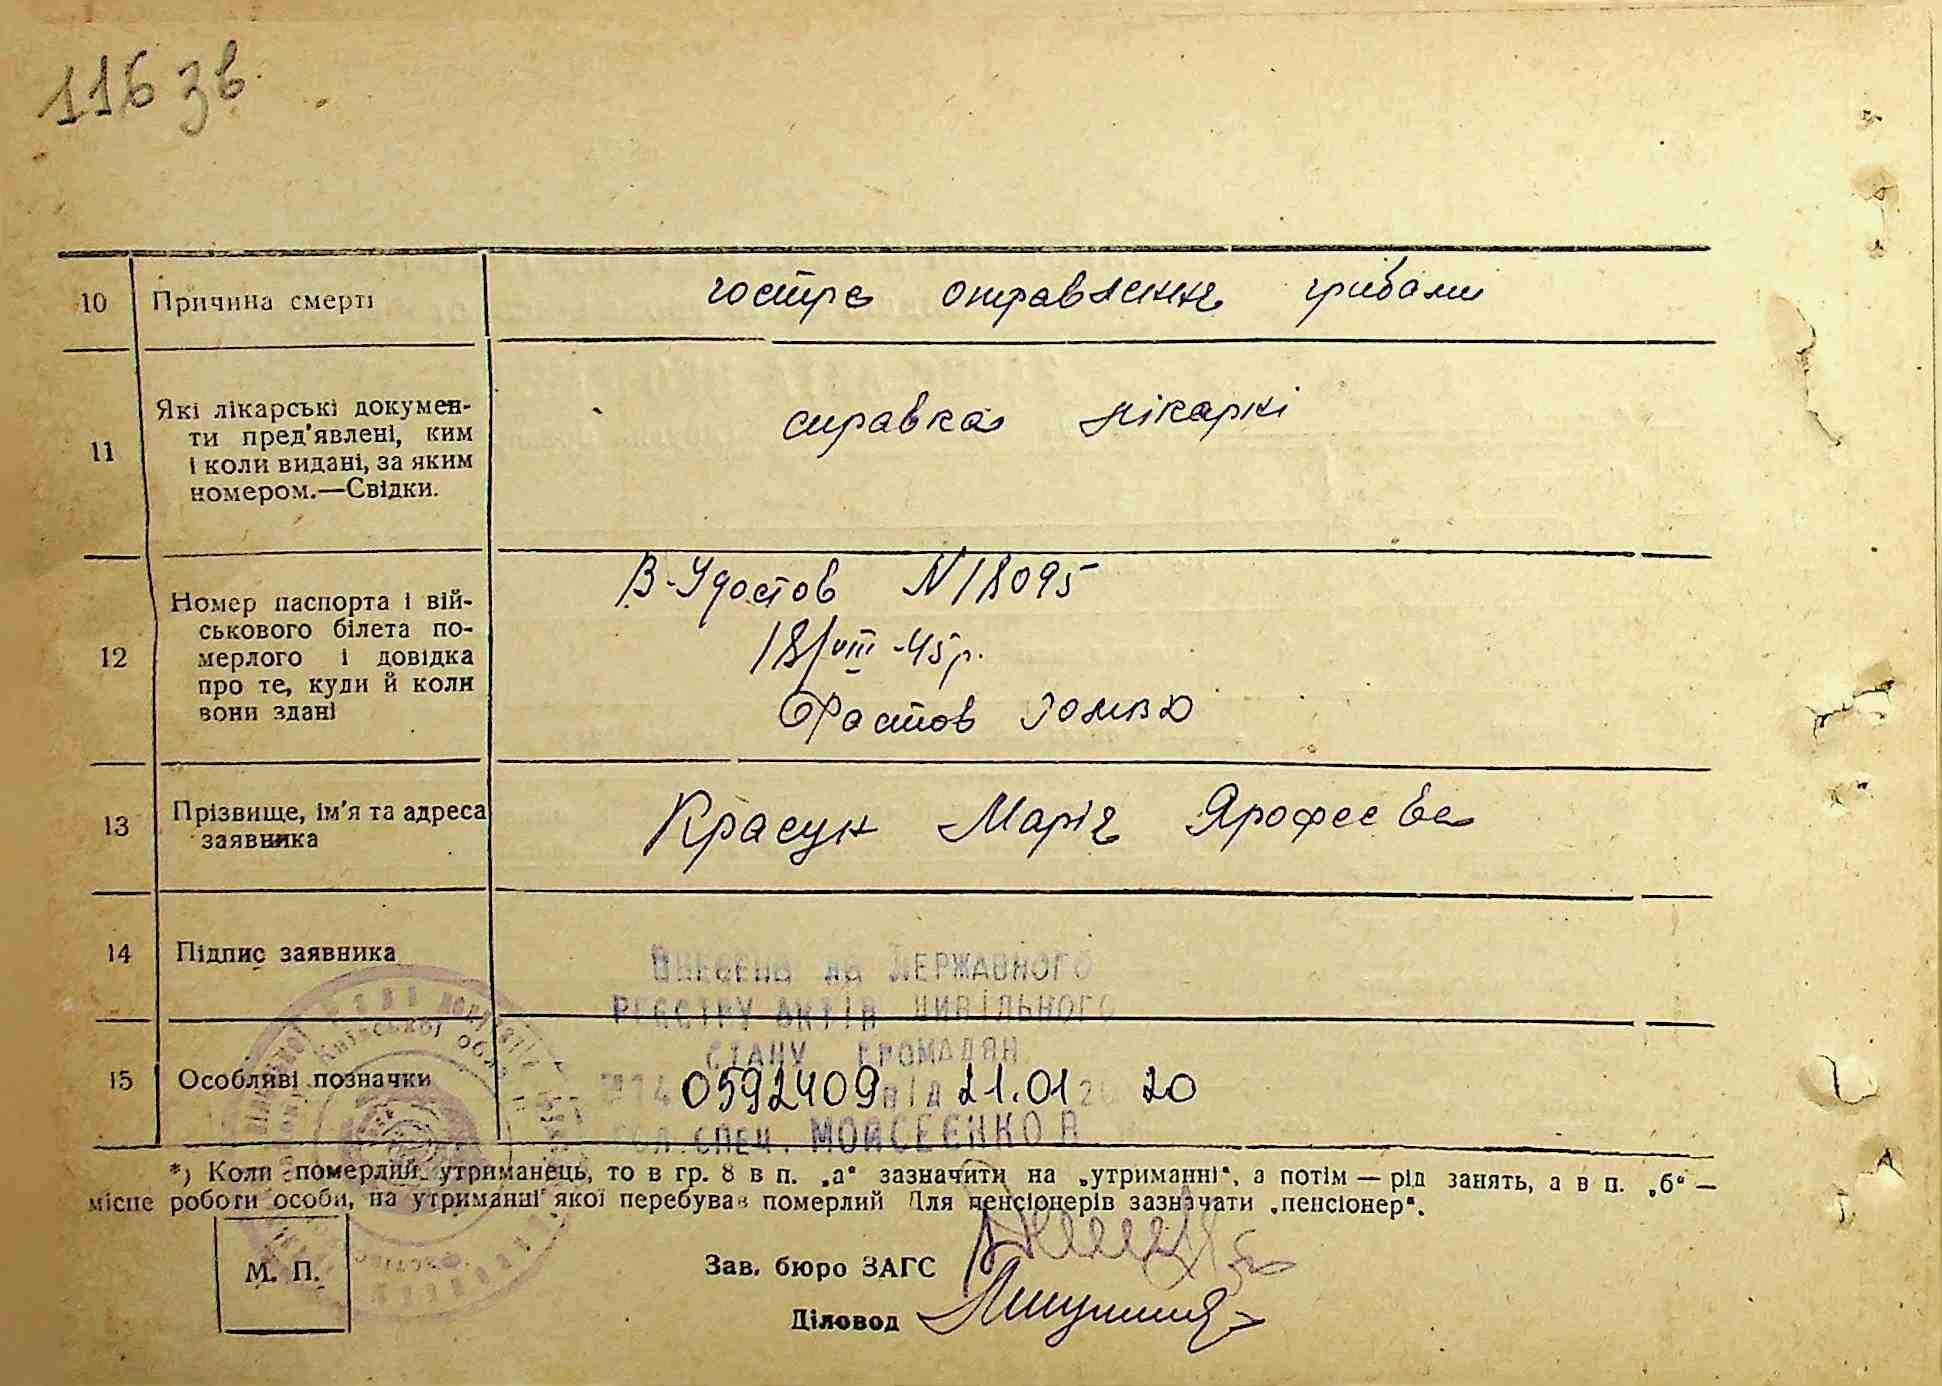 116 зв.
10 Причина смерті гостре отравлення грибами
11 Які лікарські докумен-
ти пред'явлені, ким
і коли видані, за яким
номером.—Свідки.
справка лікаркі
12 Номер паспорта і вій-
ськового білета по-
мерлого і довідка
про те, куди й коли
вони здані
В-Удостов N 18095
18/VIII-45 р.
Фастов
13 Прізвище, ім'я та адреса
заявника
Красун Марія Ярофеева
14 Підпис заявника
ВНЕСЕНО ДО ДЕРЖАВНОГО
РЕЄСТРУ АКТІВ ЦИВІЛЬНОГО
СТАНУ ГРОМАДЯН
15 Особливі позначки
0592409 від 21.01 20 20
ГОЛ.СПЕЦ. МОЙСЕЄНКО
*) Коли померлий утриманець, то в гр. 8 в п. „а“ зазначити на „утриманні“, а потім — рід занять, а в п. „б“ —
місце роботи особи, на утриманні якої перебував померлий Для пенсіонерів зазначати „пенсіонер“.
М. П.
Зав. бюро ЗАГС
Діловод